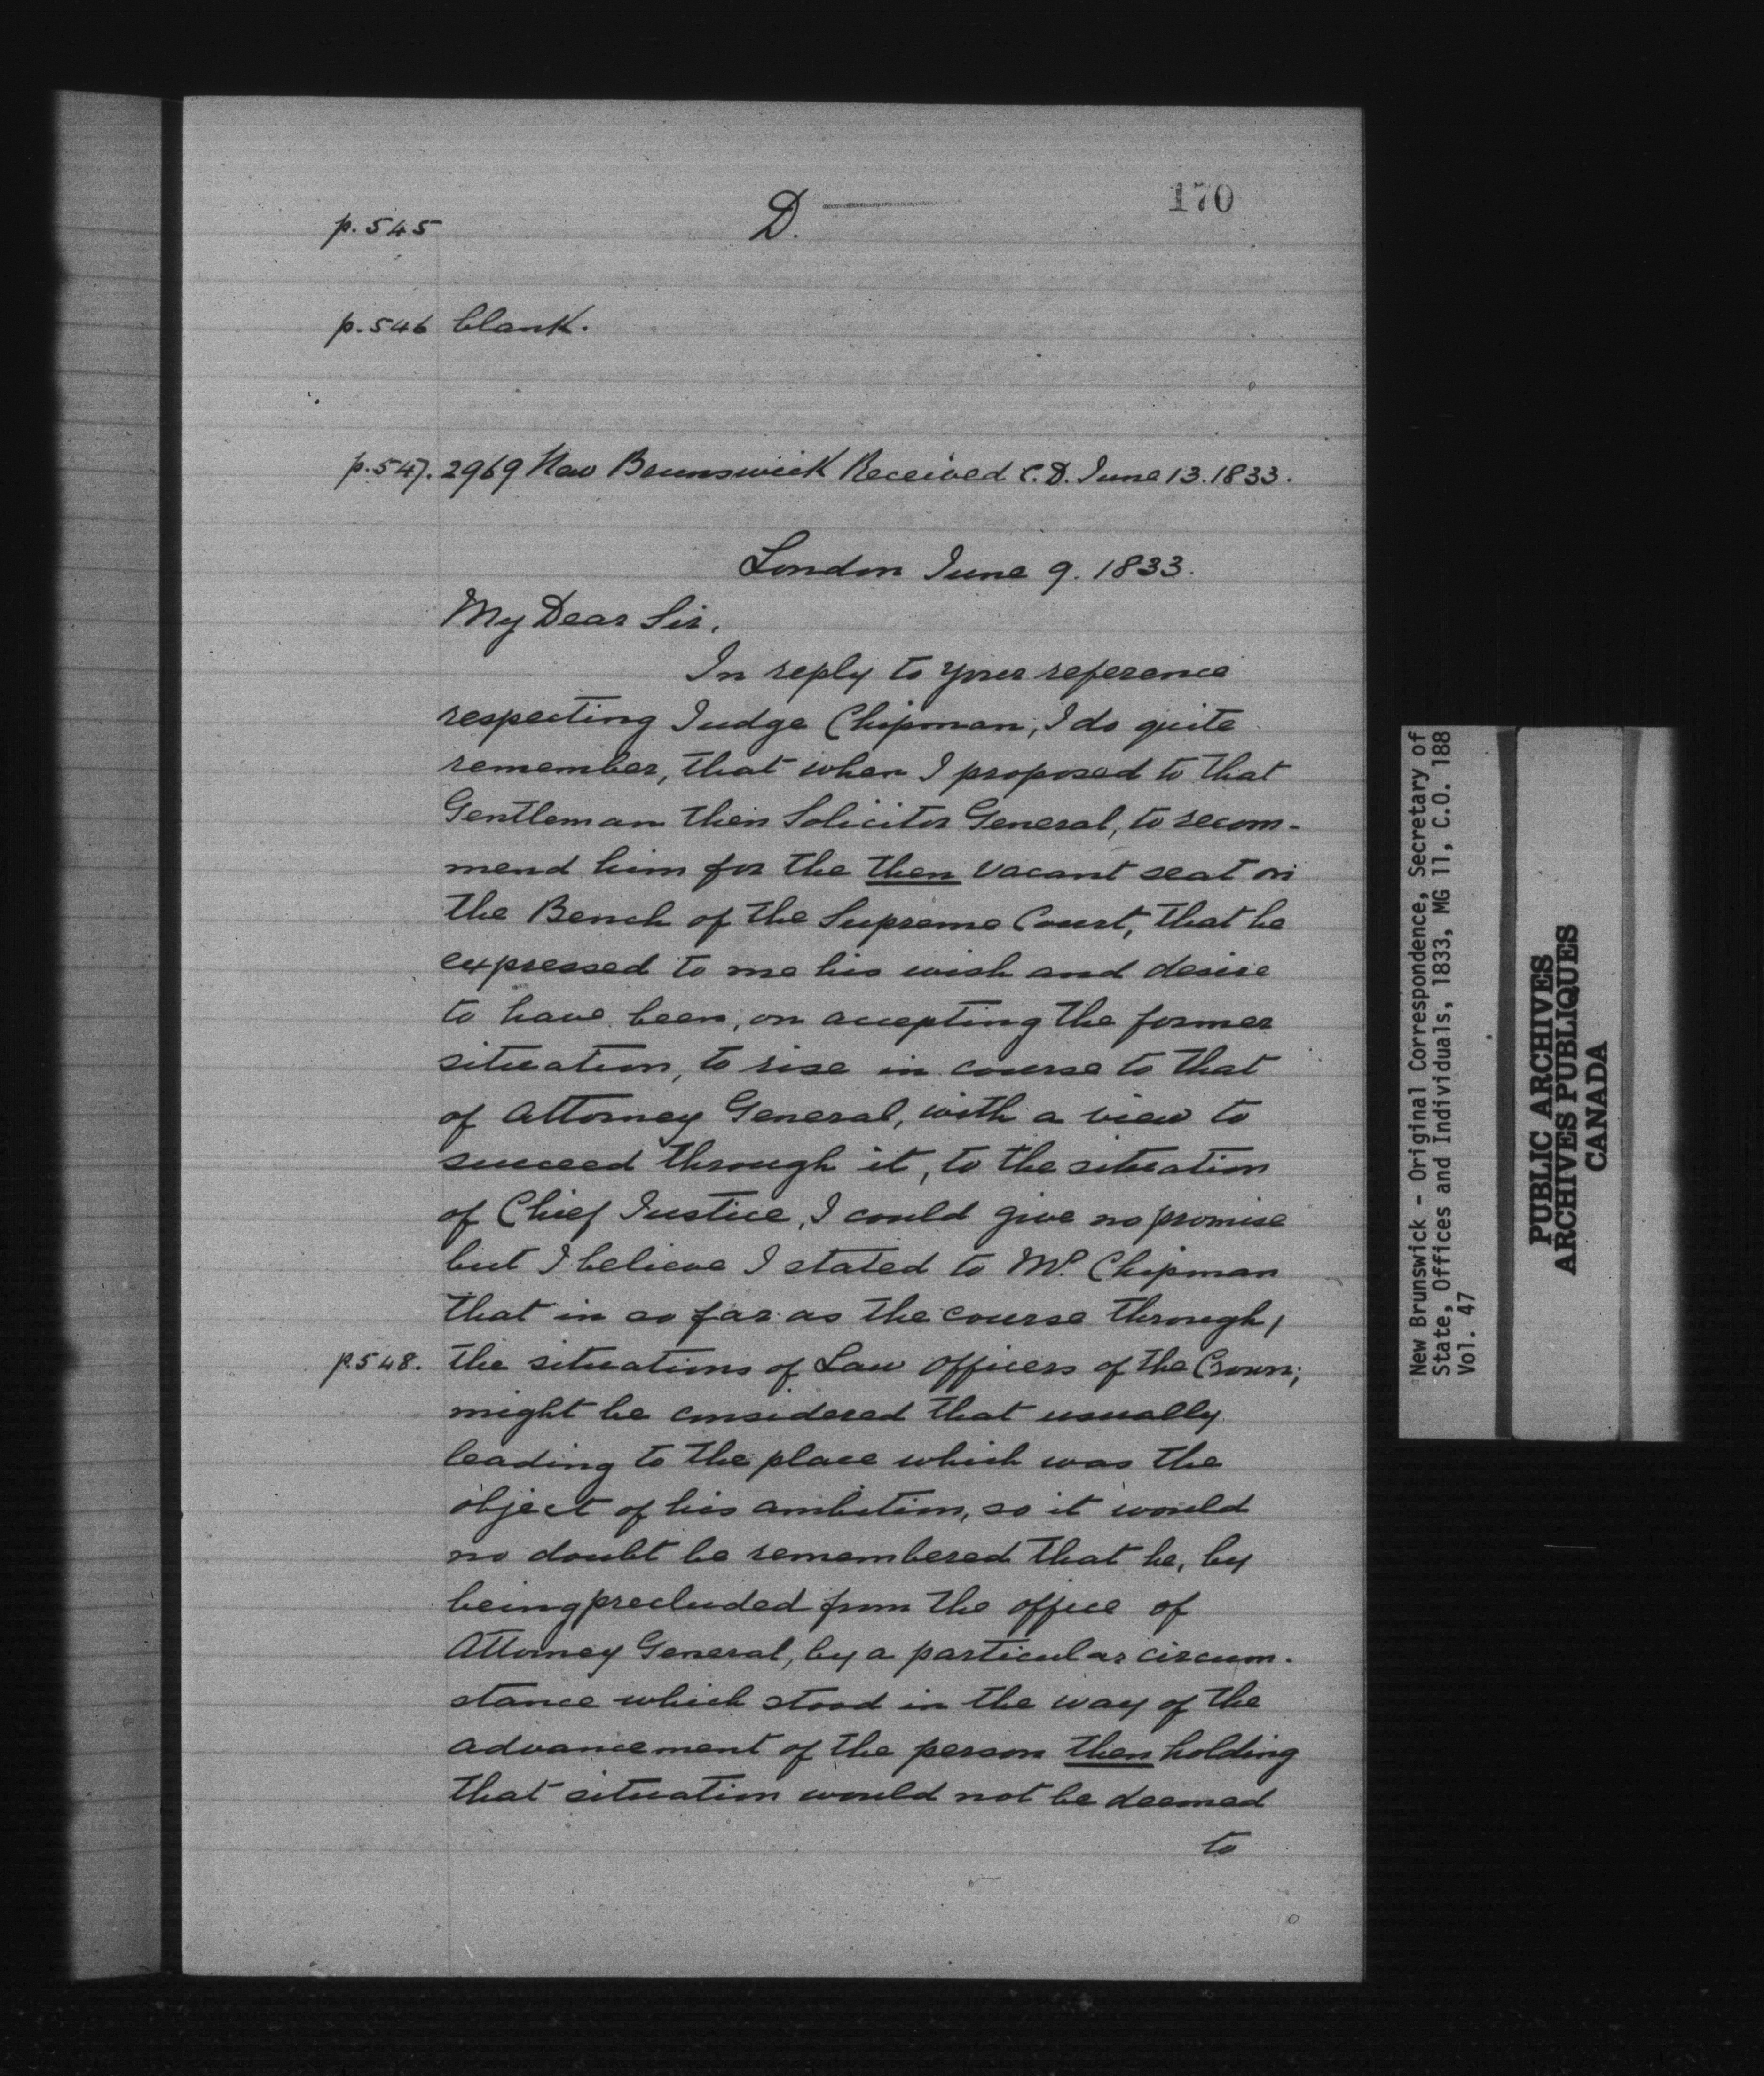 170
p.545 D.
p.546 blank.
p.547. 2969 New Brunswick Received C.D. June 13. 1833.
London June 9. 1833.
My Dear Sir,
In reply to your reference
respecting Judge Chipman, I do quite
remember, that when I proposed to that
Gentleman then Solicitor General, to recom-
mend him for the then vacant seat on
the Bench of the Supreme Court, that he
expressed to me his wish and desire
to have been, on accepting the former
situation, to rise in course to that
of Attorney General, with a view to
succeed through it, to the situation
of Chief Justice, I could give no promise
but I believe I stated to Mr. Chipman
that in so far as the course through,
p.548. the situations of Law Officers of the Crown;
might be considered that usually
leading to the place which was the
object of his ambition, so it would
no doubt be remembered that he, by
being precluded from the office of
Attorney General, by a particular circum-
stance which stood in the way of the
advancement of the person then holding
that situation would not be deemed
to
New Brunswick - Original Correspondence, Secretary of
State, Offices and Individuals, 1833, MG 11, C.O. 188
Vol. 47
PUBLIC ARCHIVES
ARCHIVES PUBLIQUES
CANADA